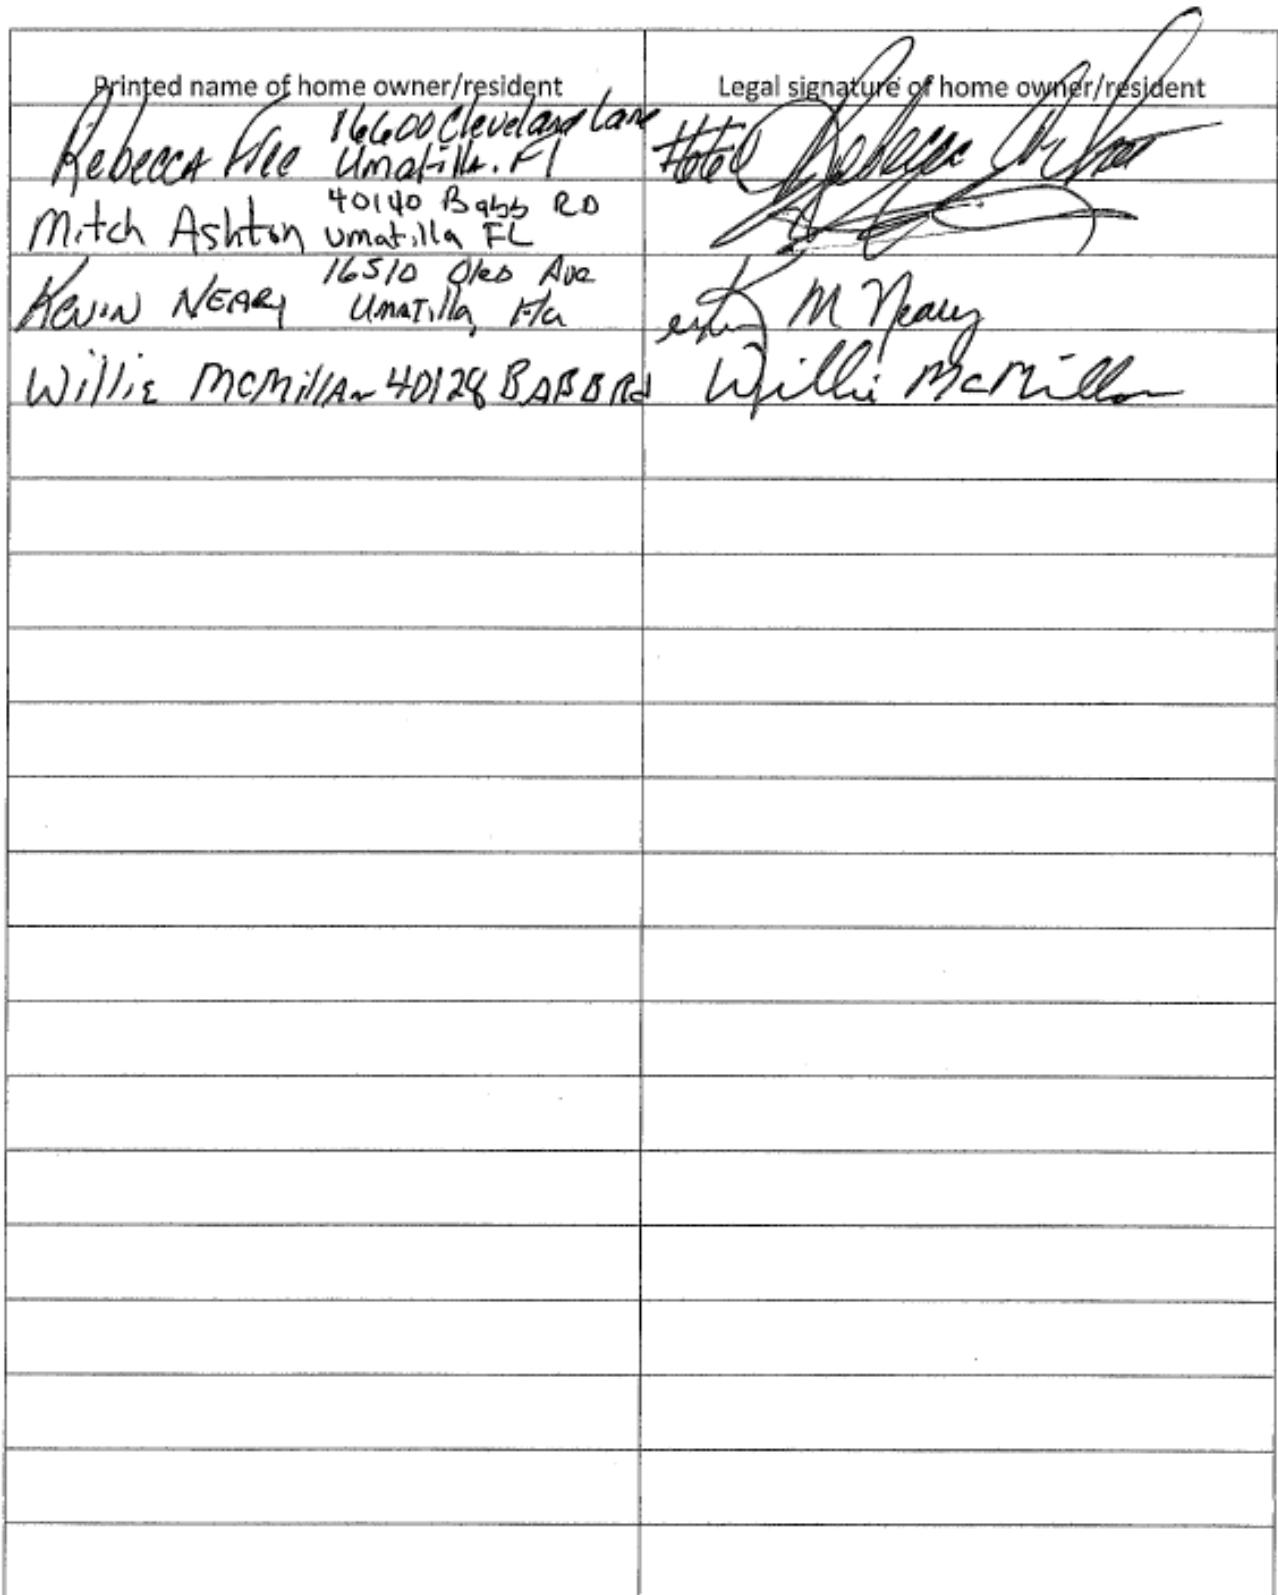 Printed name of home owner/resident
Legal signature of home owner/resident
Rebecca 16600 Cleveland Lane
Umatilla. Fl
Hotel Rebecca
Mitch Ashton 40140 Babb RD
Umatilla FL
Kevin NEARY 16510 Ave
Umatilla, Fla
K M Neary
Willie McMillan 40128 BABB Rd
Willie McMillan